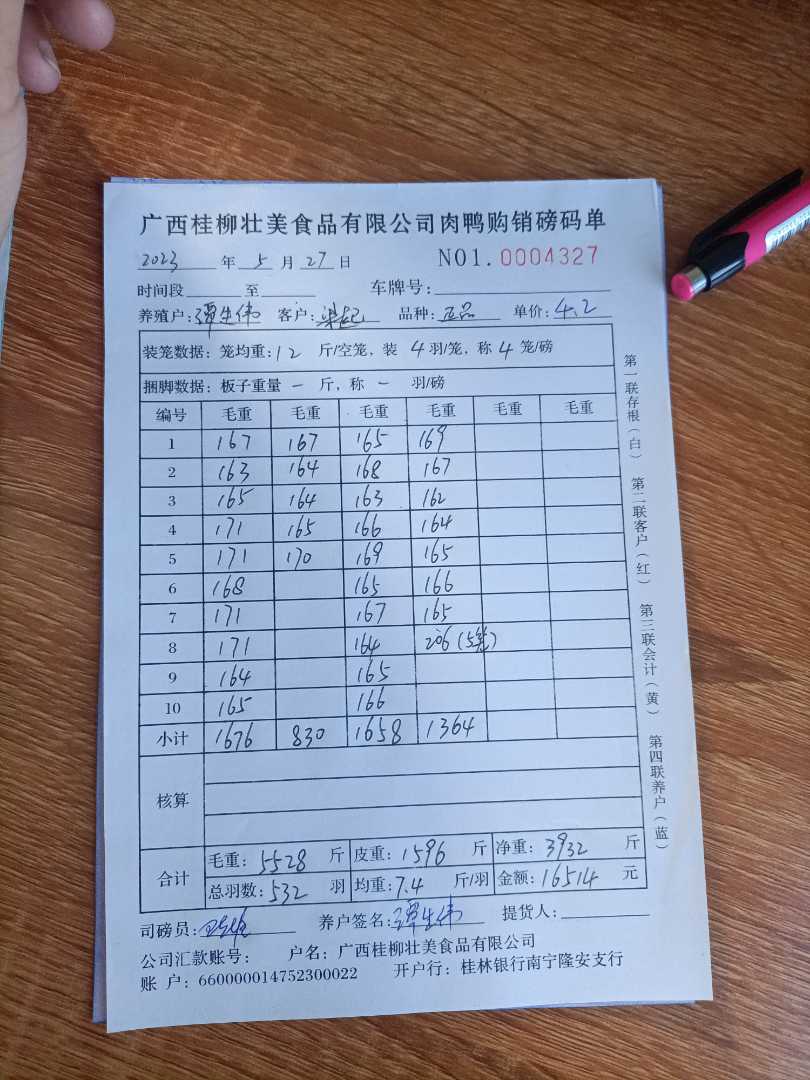 广西桂柳壮美食品有限公司肉鸭购销磅码单
2023 年 5 月 27 日 NO1. 0004327
时间段 至 车牌号:
养殖户: 谭生伟 客户: 品种: 正品 单价: 4.2
装笼数据: 笼均重: 12 斤/空笼, 装 4 羽/笼, 称 4 笼/磅
捆脚数据: 板子重量 一 斤, 称 一 羽/磅
编号 毛重 毛重 毛重 毛重 毛重 毛重
1 167 167 165 169
2 163 164 168 167
3 165 164 163 162
4 171 165 166 164
5 171 170 169 165
6 168 165 166
7 171 167 165
8 171 164 206 (5笼)
9 164 165
10 165 166
小计 1676 830 1658 1364
核算
合计 毛重: 5528 斤 皮重: 1596 斤 净重: 3932 斤
总羽数: 532 羽 均重: 7.4 斤/羽 金额: 16514 元
司磅员: 养户签名: 谭生伟 提货人:
公司汇款账号: 户名: 广西桂柳壮美食品有限公司
账 户: 660000014752300022 开户行: 桂林银行南宁隆安支行
第一联存根(白) 第二联客户(红) 第三联会计(黄) 第四联养户(蓝)